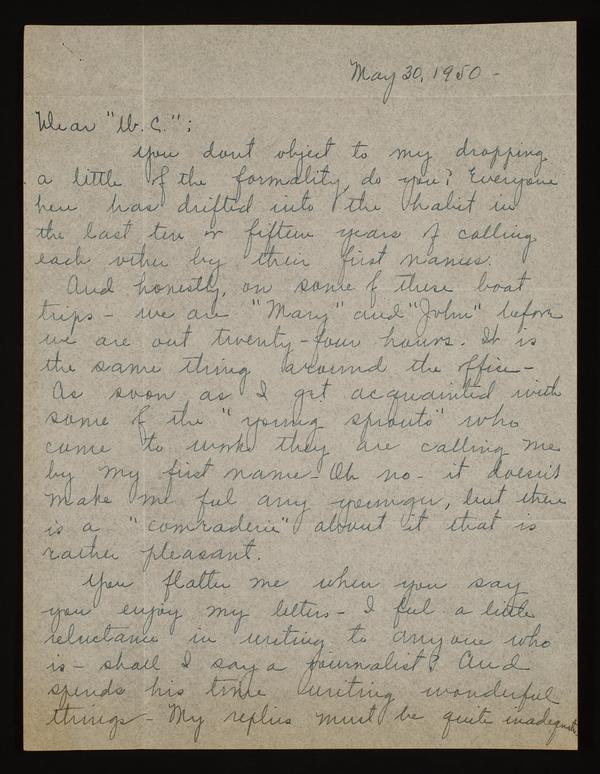 May 30, 1950 -
Dear "W. C.":
You dont object to my dropping
a little of the formality, do you? Everyone
here has drifted into the habit in
the last ten or fifteen years of calling
each other by their first names.
And honestly, on some of these boat
trips - we are "Mary" and "John" before
we are out twenty-four hours. It is
the same thing around the office -
As soon as I get acquainted with
some of the "young sprouts" who
come to work they are calling me
by my first name - Oh no - it doesn't
make me feel any younger, but there
is a "comraderie" about it that is
rather pleasant.
You flatter me when you say
you enjoy my letters - I feel a little
reluctance in writing to anyone who
is - shall I say a journalist? And
spends his time writing wonderful
things - My replies must be quite inadequate